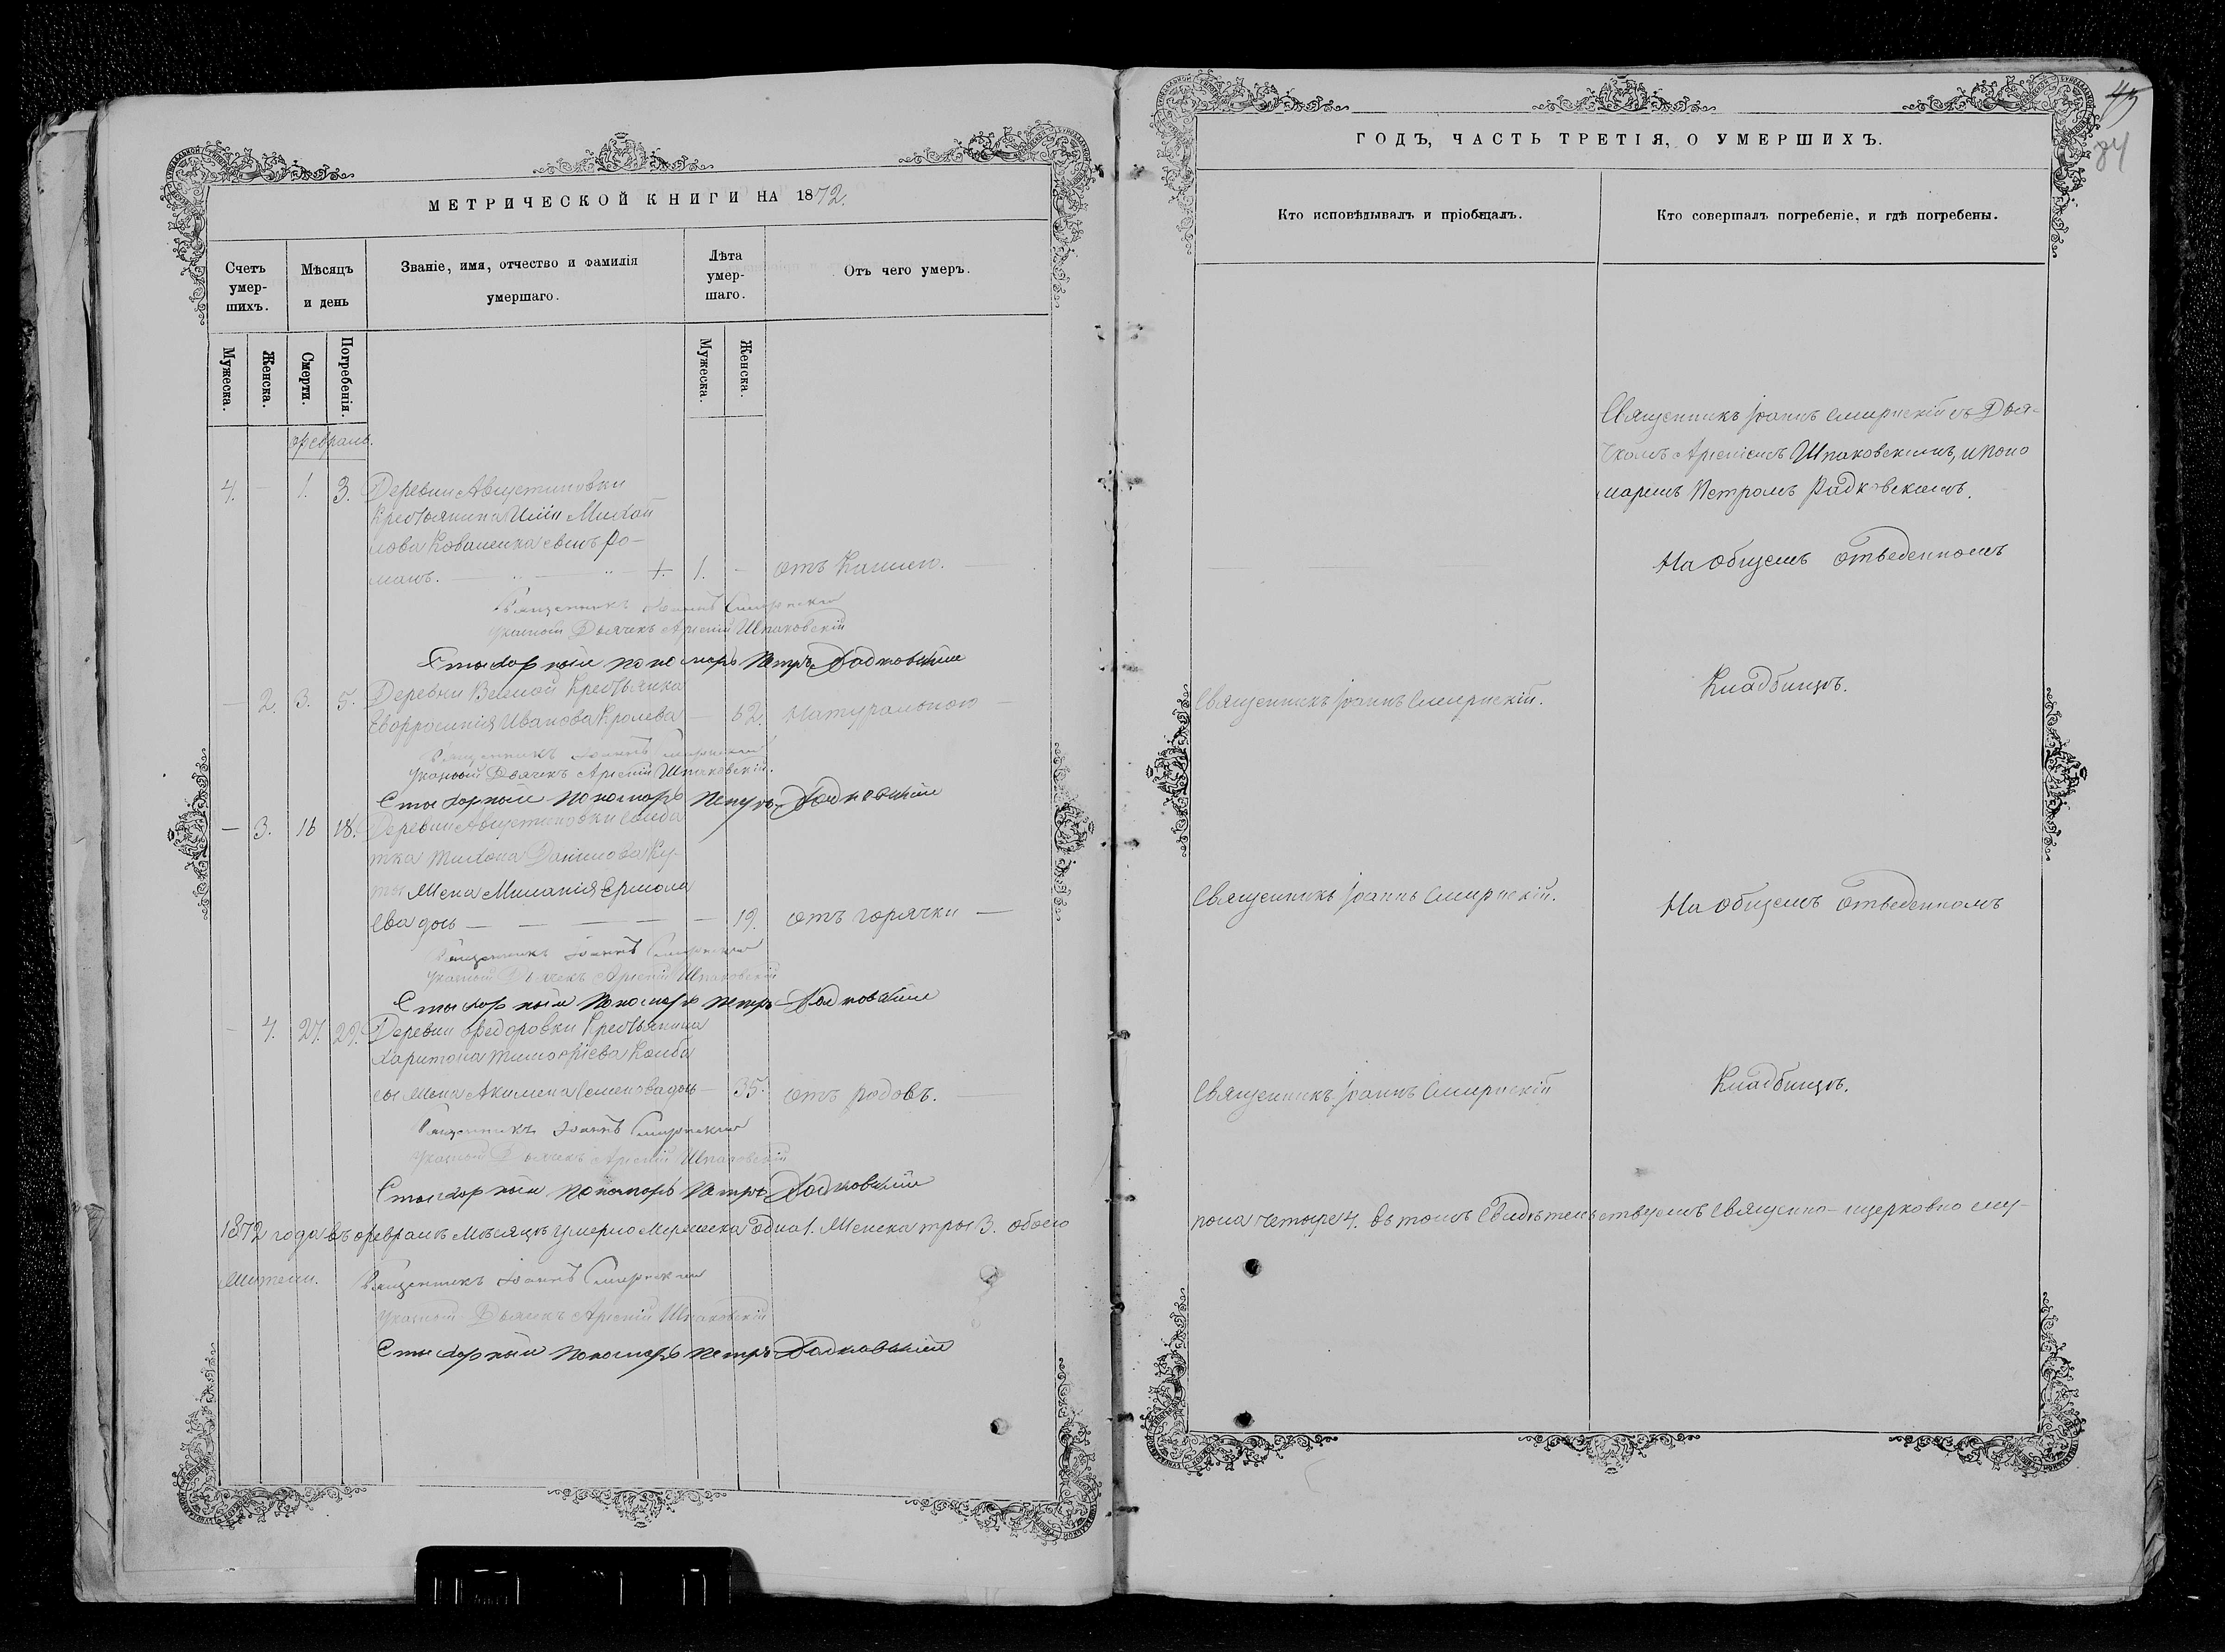 МЕТРИЧЕСКОЙ КНИГИ НА 1872.
Счетъ умер-шихъ.
Мѣсяцъ и день
Званіе, имя, отчество и фамилія умершаго.
Лѣта умер-шаго.
Отъ чего умеръ.
Мужеска.
Женска.
Смерти.
Погребенія.
Мужеска.
Женска.
Февраль.
4. — 1. 3. Деревни Августиновки
Крестьянина Иліи Михай
лова Коваленка сынъ Ро-
манъ. 1. — отъ Кашлю.
Священникъ Іоаннъ Смирнскій
Указный Дьячекъ Арсеній Шпаковскій
Стыхарный пономарь Петръ Радковскій
— 2. 3. 5. Деревни Вельной Крестьянка
Евфросинія Иванова Кролева — 62. Натуральною —
Священникъ Іоаннъ Смирнскій
Указный Дьячекъ Арсеній Шпаковскій.
Стыхарный пономарь Петръ Радковскій
— 3. 16 18. Деревни Августиновки Солда
тка Тихона Данилова Ку-
ты Жена Миланія Ермола
ева дочь — 19. отъ горячки —
Священникъ Іоаннъ Смирнскій
Указный Дьячекъ Арсеній Шпаковскій
Стыхарный пономарь Петръ Радковскій
— 4. 27. 29. Деревни Федоровки Крестьянина
Харитона Тимофіева Колба
сы Жена Акилина Семенова дочь — 35. отъ родовъ. —
Священникъ Іоаннъ Смирнскій
Указный Дьячекъ Арсеній Шпаковскій
Стыхарный пономарь Петръ Радковскій
1872 года въ феврале мѣсяцѣ умерло Мужеска одна 1. Женска тры 3. обоего
жители.
Священникъ Іоаннъ Смирнскій
Указный Дьячекъ Арсеній Шпаковскій
Стыхарный пономарь Петръ Радковскій
84
ГОДЪ, ЧАСТЬ ТРЕТІЯ, О УМЕРШИХЪ.
Кто исповѣдывалъ и пріобщалъ.
Кто совершалъ погребеніе, и гдѣ погребены.
Священникъ Іоаннъ Смирнскій съ Дья-
чкомъ Арсеніемъ Шпаковскимъ, и поно
маремъ Петромъ Радковскимъ.
На общемъ отведенномъ
Священникъ Іоаннъ Смирнскій.
Кладбищѣ.
Священникъ Іоаннъ Смирнскій.
На общемъ отведенномъ
Священникъ Іоаннъ Смирнскій
Кладбищѣ.
пола четыре 4. въ томъ свидѣтельствуемъ священно-церковно слу-